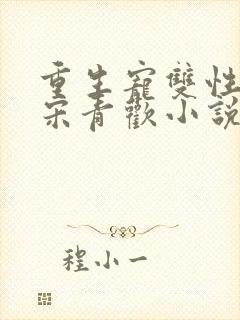 重生寵雙性
宋青歡小說
程小一